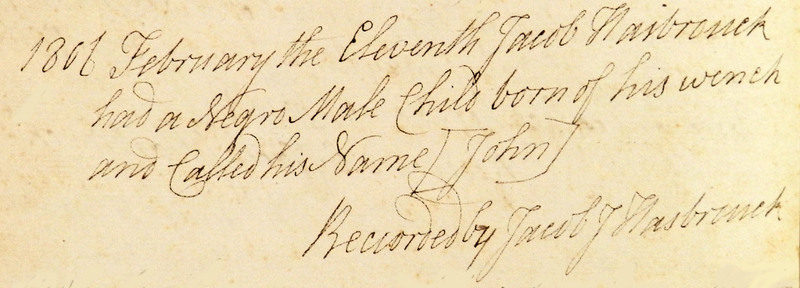 1806 February the Eleventh Jacob Hasbrouck
had a Negro Male Child born of his wench
and Called his Name [John]
Reccorded by Jacob J Hasbrouck